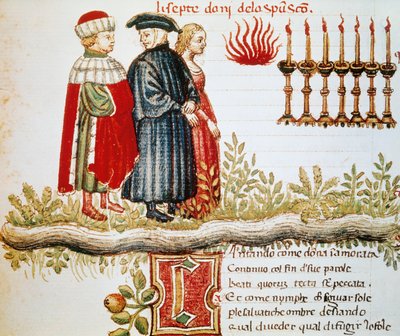 li septe doni de lo spu sco.
C
Antando come dona inamorata
Continuo col fin d sue parole
Beati quorum tecta st peccata.
Et come nymphe ch si giuar sole
p le saluatiche ombre desiando
qual di ueder qual di fugir lo sole